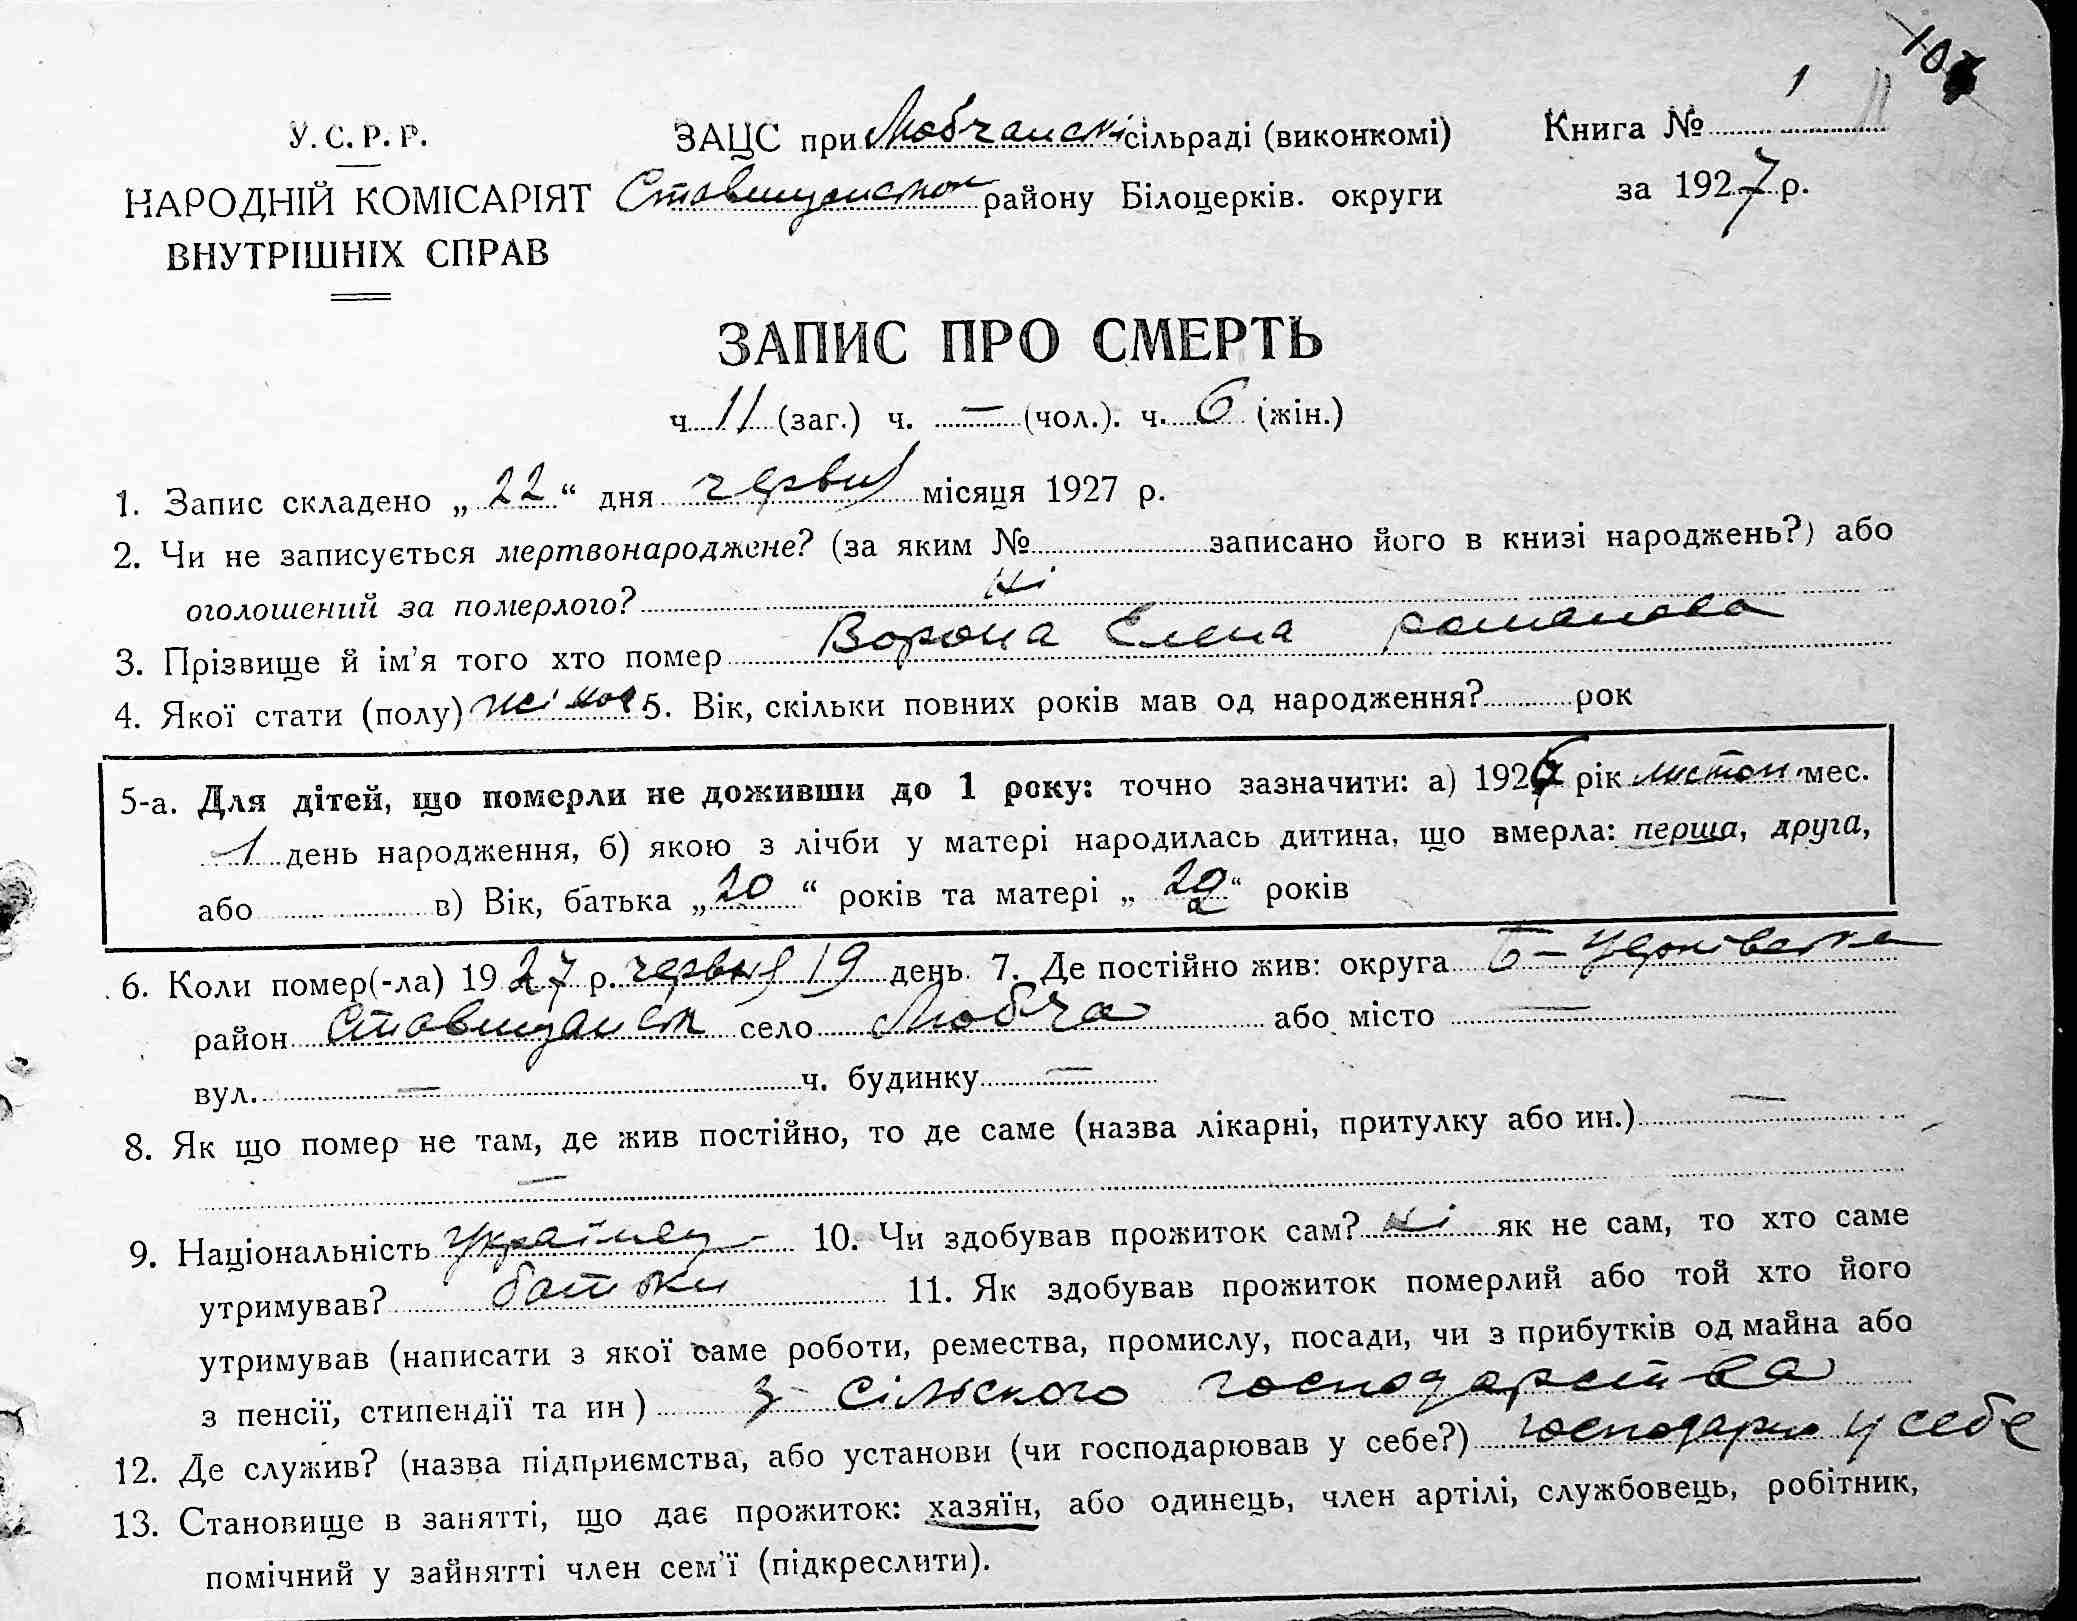 107
У. С. Р. Р.
НАРОДНІЙ КОМІСАРІЯТ
ВНУТРІШНІХ СПРАВ
ЗАЦС при Любчанські сільраді (виконкомі)
Ставищанськ району Білоцерків. округи
Книга № 1
за 1927 р.
ЗАПИС ПРО СМЕРТЬ
ч. 11 (заг.) ч. — (чол.). ч. 6 (жін.)
1. Запис складено „ 22 “ дня червня місяця 1927 р.
2. Чи не записується мертвонароджене? (за яким № записано його в книзі народжень?) або
оголошений за померлого? ні
3. Прізвище й ім'я того хто помер Ворона Елена романова
4. Якої стати (полу) жіноч 5. Вік, скільки повних років мав од народження? рок
5-а. Для дітей, що померли не доживши до 1 року: точно зазначити: а) 1926 рік листоп мес.
1 день народження, б) якою з лічби у матері народилась дитина, що вмерла: перша, друга,
або в) Вік, батька „ 20 “ років та матері „ “ років
6. Коли помер(-ла) 1927 р. червня 19 день. 7. Де постійно жив: округа Б-Церківська
район Ставищанськ село Любча або місто —
вул. — ч. будинку —
8. Як що помер не там, де жив постійно, то де саме (назва лікарні, притулку або ин.) —
—
9. Національність українец 10. Чи здобував прожиток сам? ні як не сам, то хто саме
утримував? батьки 11. Як здобував прожиток померлий або той хто його
утримував (написати з якої саме роботи, ремества, промислу, посади, чи з прибутків од майна або
з пенсії, стипендії та ин) з сільского господарства
12. Де служив? (назва підприємства, або установи (чи господарював у себе?) господарив у себе
13. Становище в занятті, що дає прожиток: хазяїн, або одинець, член артілі, службовець, робітник,
помічний у зайнятті член сем'ї (підкреслити).